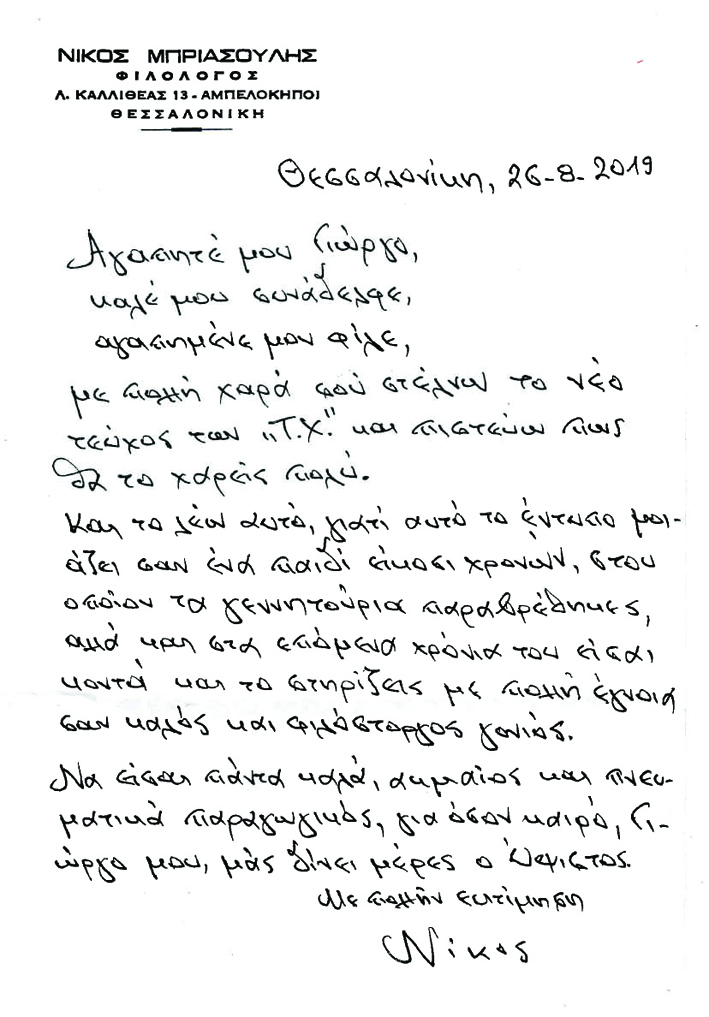 ΝΙΚΟΣ ΜΠΡΙΑΣΟΥΛΗΣ
ΦΙΛΟΛΟΓΟΣ
Λ. ΚΑΛΛΙΘΕΑΣ 13 - ΑΜΠΕΛΟΚΗΠΟΙ
ΘΕΣΣΑΛΟΝΙΚΗ
Θεσσαλονίκη, 26-8-2019
Αγαπητέ μου Γιώργο,
καλέ μου συνάδελφε,
αγαπημένε μου φίλε,
με πολλή χαρά σού στέλνω το νέο
τεύχος των „Τ.Χ." και πιστεύω πως
θα το χαρείς πολύ.
Και το λέω αυτό, γιατί αυτό το έντυπο μοι-
άζει σαν ένα παιδί είκοσι χρονών, στου
οποίου τα γεννητούρια παραβρέθηκες,
αλλά και στα επόμενα χρόνια του είσαι
κοντά και το στηρίζεις με πολλή έγνοια
σαν καλός και φιλόστοργος γονιός.
Να είσαι πάντα καλά, ακμαίος και πνευ-
ματικά παραγωγικός, για όσον καιρό, Γι-
ώργο μου, μάς δίνει μέρες ο Ύψιστος.
Με πολλήν εκτίμηση
Νίκος